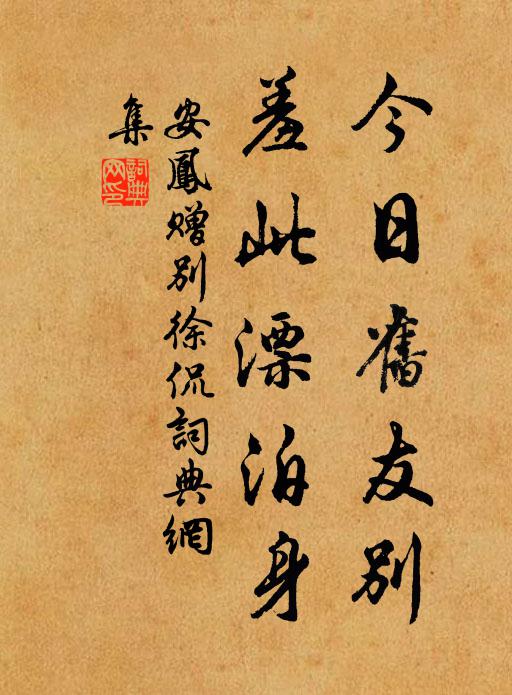 今日舊友別
羞此漂泊身
安鳳贈別徐侃詞典網
集
詞典
网印